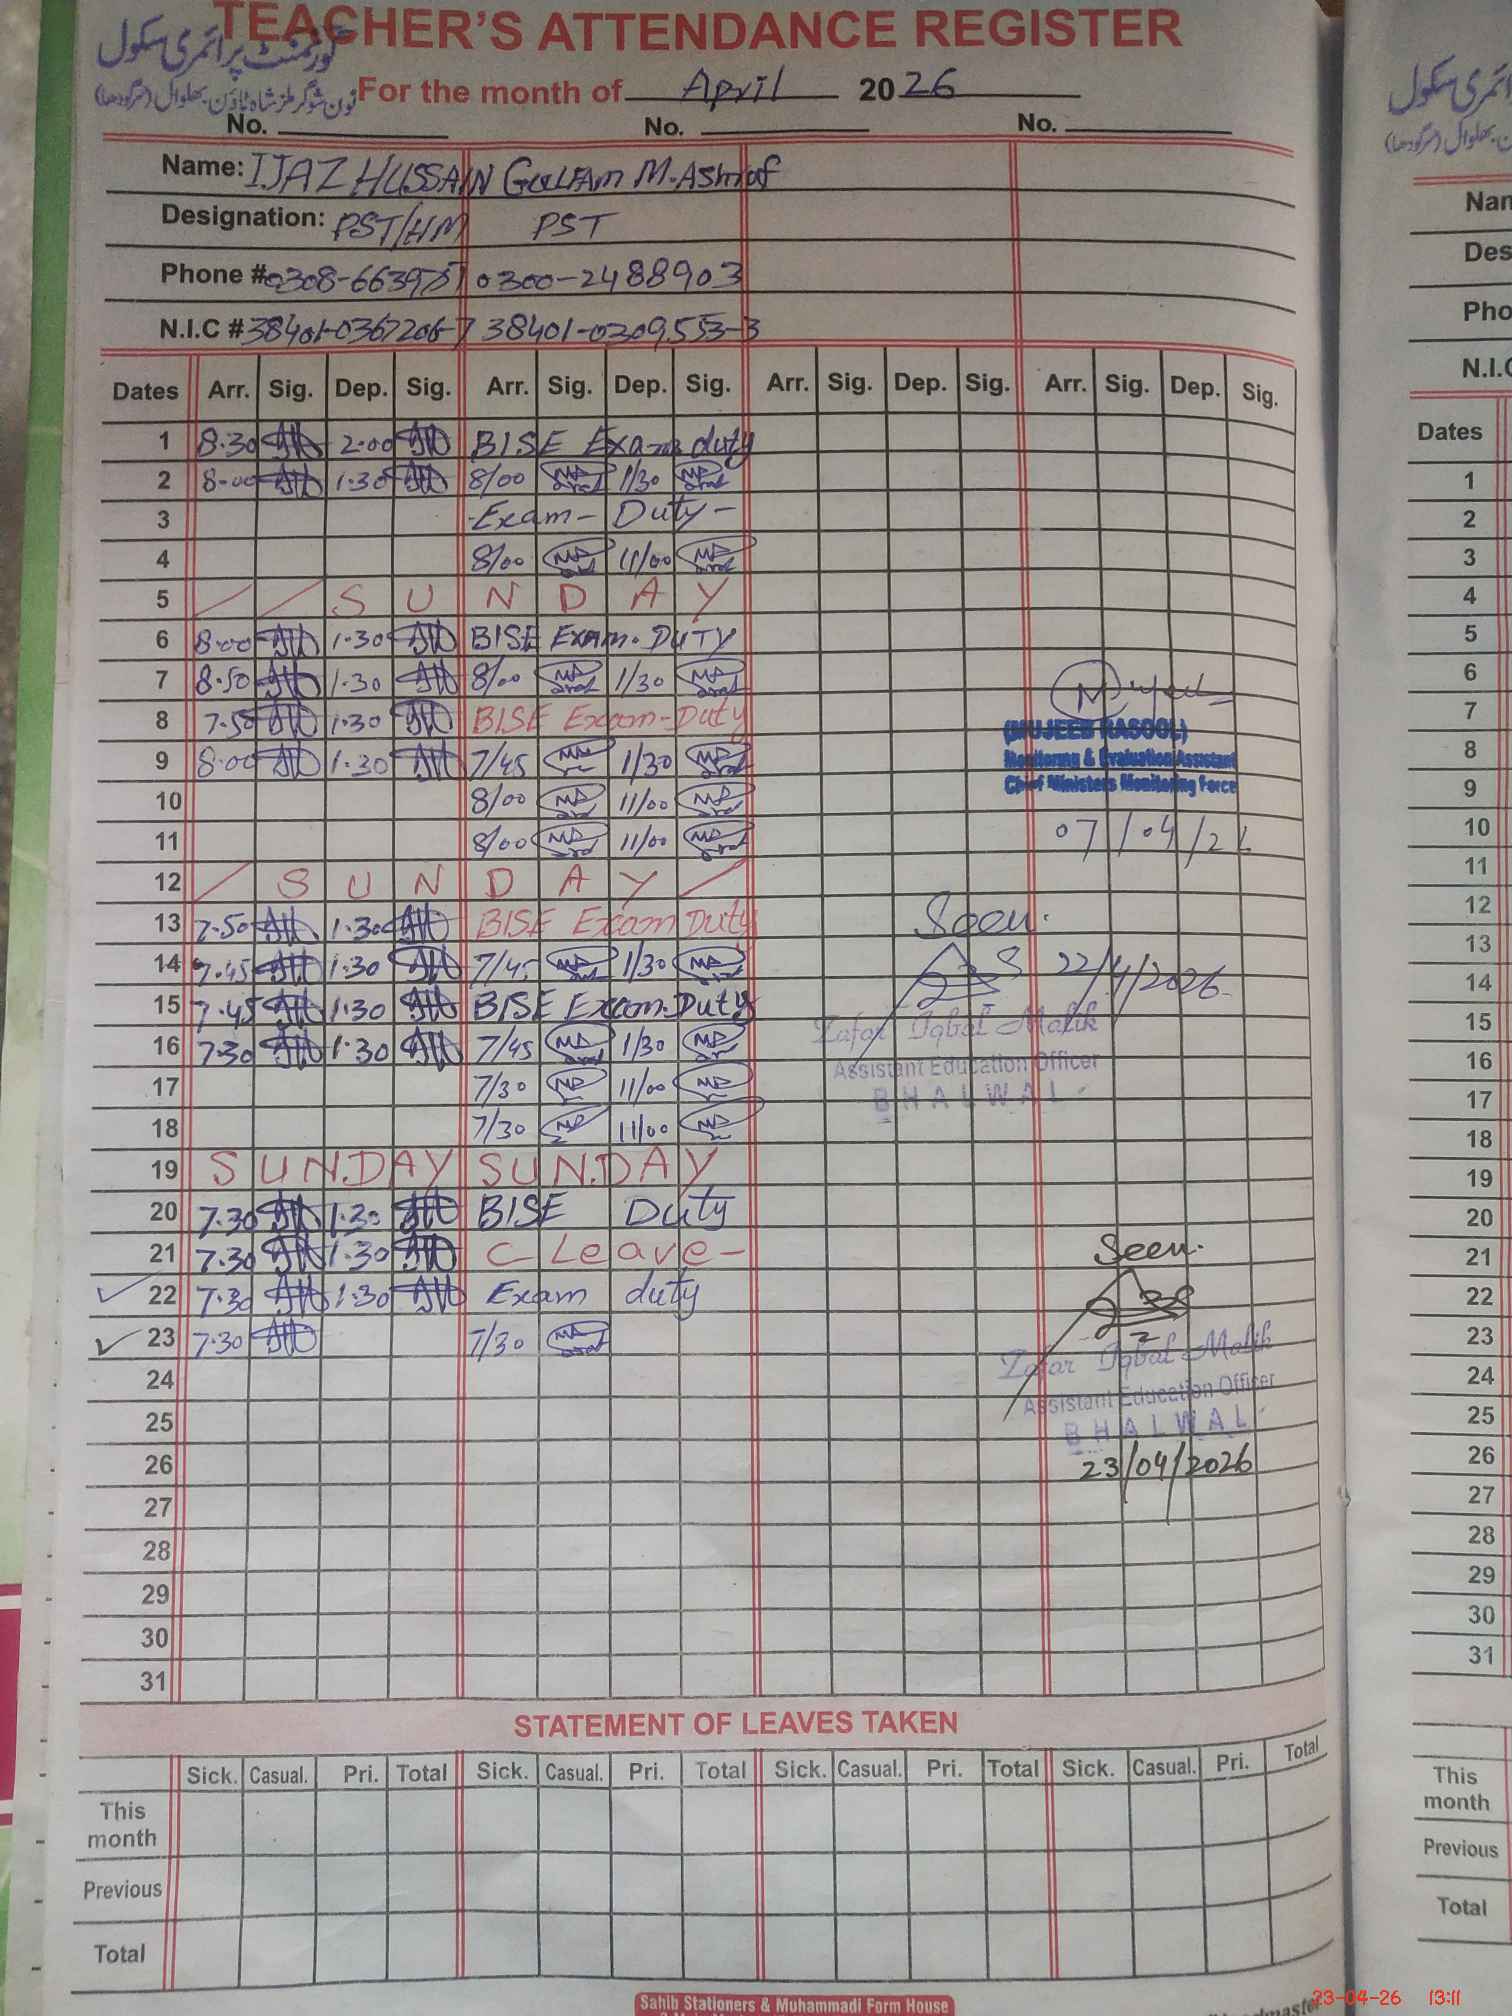 TEACHER'S ATTENDANCE REGISTER
گورنمنٹ پرائمری سکول
نون شوگر ملز شاہ ٹاؤن بھلوال (سرگودھا)
For the month of April 2026
No. No. No.
Name: IJAZ HUSSAIN GULFAM M.Ashraf
Designation: PST/HM PST
Phone # 0300-2488903
N.I.C # 38401-0367206-7 38401-0309553-3
Dates Arr. Sig. Dep. Sig. Arr. Sig. Dep. Sig. Arr. Sig. Dep. Sig. Arr. Sig. Dep. Sig.
1 8.30 2.00 BISE Exam duty
2 8.00 1.30 8/00 1/30
3 -Exam- Duty-
4 8/00 11/00
5 SUNDAY
6 8.00 1.30 BISE EXAM.DUTY
7 8.50 1.30 8/00 1/30
8 7.50 1.30 BISE Exam-Duty
(MUJEEB RASOOL)
9 8.00 1.30 7/45 1/30
Monitoring & Evaluation Assistant
Chief Ministers Monitoring Force
10 8/00 11/00
11 8/00 11/00
07/04/26
12 SUNDAY
13 7.50 1.30 BISE Exam Duty
Seen.
14 7.45 1.30 7/45 1/30
22/4/2026
15 7.45 1.30 BISE Exam.Duty
Zafar Iqbal Malik
16 7.30 1.30 7/45 1/30
Assistant Education Officer
BHALWAL
17 7/30 11/00
18 7/30 11/00
19 SUNDAY SUNDAY
20 7.30 1.30 BISE Duty
21 7.30 1.30 C-Leave-
Seen.
22 7.30 1.30 Exam duty
23 7.30 7/30
Zafar Iqbal Malik
24
Assistant Education Officer
25
BHALWAL
26
23/04/2026
27
28
29
30
31
STATEMENT OF LEAVES TAKEN
Sick. Casual. Pri. Total Sick. Casual. Pri. Total Sick. Casual. Pri. Total Sick. Casual. Pri. Total
This month
Previous
Total
Sahib Stationers & Muhammadi Form House
پرائمری سکول
Dates
1
2
3
4
5
6
7
8
9
10
11
12
13
14
15
16
17
18
19
20
21
22
23
24
25
26
27
28
29
30
31
This month
Previous
Total
23-04-26 13:11